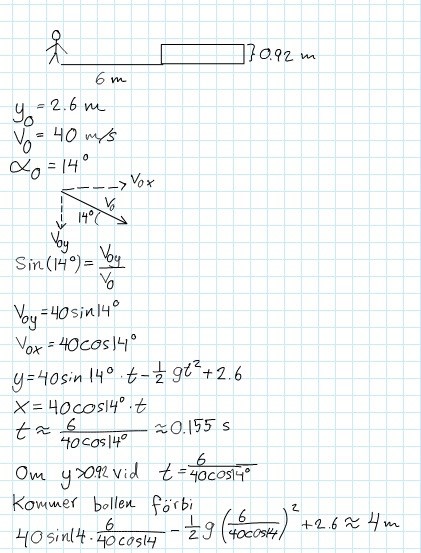 }0.92 m
6 m
y₀ = 2.6 m
V₀ = 40 m/s
α₀ = 14°
V₀ₓ
V₀
14°
V₀y
Sin(14°) = V₀y/V₀
V₀y = 40 sin 14°
V₀ₓ = 40 cos 14°
y = 40 sin 14° · t - 1/2 gt² + 2.6
x = 40 cos 14° · t
t ≈ 6/(40 cos 14°) ≈ 0.155 s
Om y > 0.92 vid t = 6/(40 cos 14°)
Kommer bollen förbi
40 sin 14 · 6/(40 cos 14) - 1/2 g (6/(40 cos 14))² + 2.6 ≈ 4 m